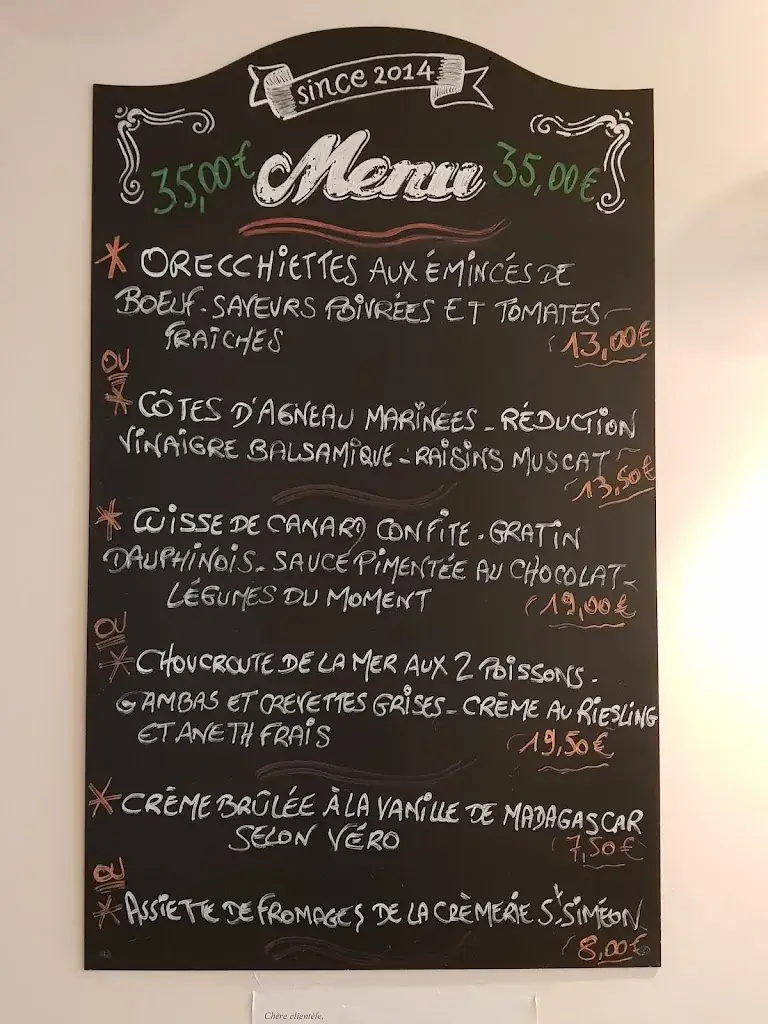 since 2014
35,00€ Menu 35,00€
* ORECCHIETTES AUX ÉMINCÉS DE
BOEUF - SAVEURS POIVRÉES ET TOMATES
FRAÎCHES 13,00€
OU
* CÔTES D'AGNEAU MARINÉES - RÉDUCTION
VINAIGRE BALSAMIQUE - RAISINS MUSCAT
13,50€
* CUISSE DE CANARD CONFITE - GRATIN
DAUPHINOIS - SAUCE PIMENTÉE AU CHOCOLAT -
LÉGUMES DU MOMENT 19,00€
OU
* CHOUCROUTE DE LA MER AUX 2 POISSONS -
GAMBAS ET CREVETTES GRISES - CRÈME AU RIESLING
ET ANETH FRAIS 19,50€
* CRÈME BRÛLÉE À LA VANILLE DE MADAGASCAR
SELON VÉRO 7,50€
OU
* ASSIETTE DE FROMAGES DE LA CRÈMERIE St SIMÉON
8,00€
Chère clientèle,